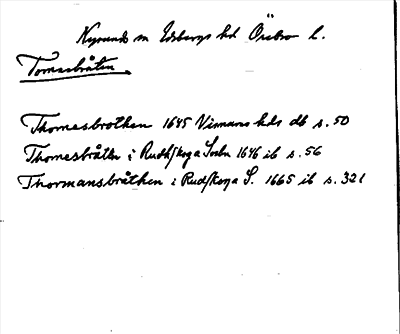 Kyrsunds sn Edsbergs hd Örebro l.
Tomasbråten
Thomesbrothen 1645 Visnums hds db s. 50
Thomesbråtten i Rudhskoga Sochn 1646 ib s. 56
Thormansbråthen i Rudskoga S. 1665 ib s. 321